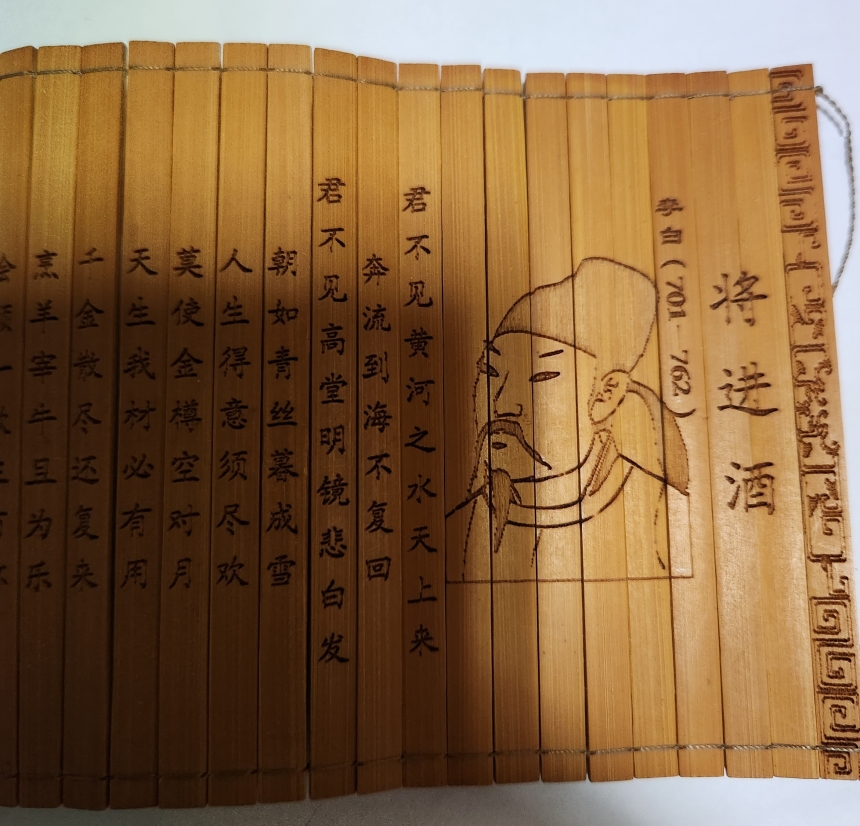 将进酒
李白(701-762)
君不见黄河之水天上来
奔流到海不复回
君不见高堂明镜悲白发
朝如青丝暮成雪
人生得意须尽欢
莫使金樽空对月
天生我材必有用
千金散尽还复来
烹羊宰牛且为乐